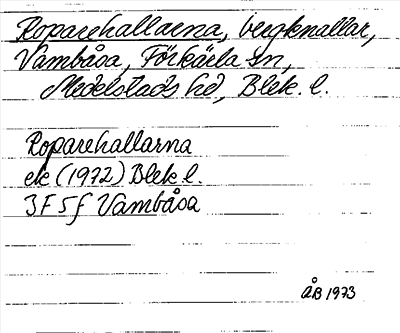 Roparehallarna, bergknallar,
Vambåsa, Förkärla sn,
Medelstads hd, Blek. l.
Roparehallarna
ek (1972) Blek l.
3F5f Vambåsa
ÅB 1973